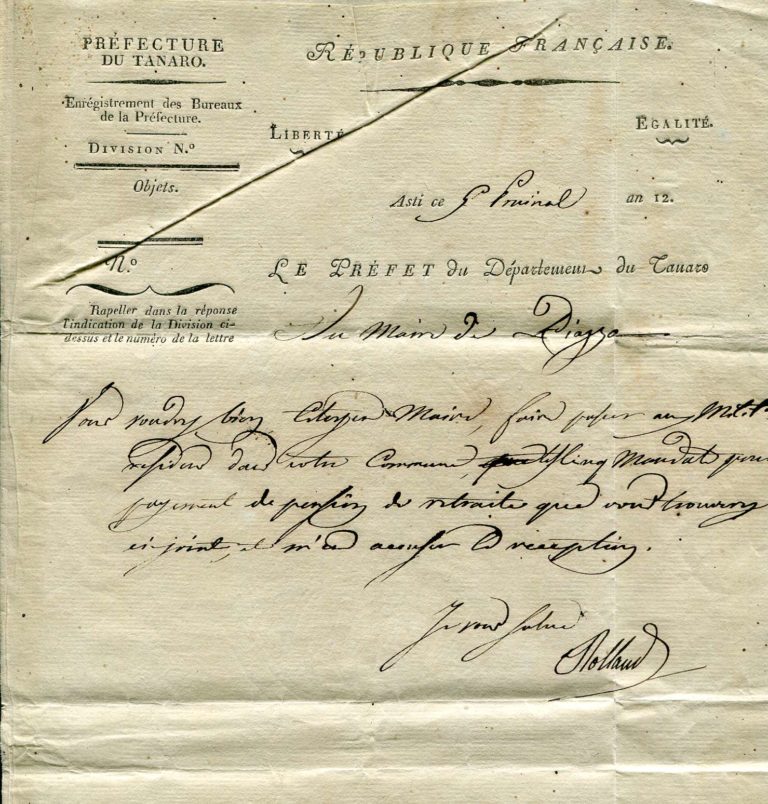 PRÉFECTURE
DU TANARO.
Enrégistrement des Bureaux
de la Préfecture.
DIVISION N.º
Objets.
N.º
Rapeller dans la réponse
l'indication de la Division ci-
dessus et le numéro de la lettre
RÉPUBLIQUE FRANÇAISE.
LIBERTÉ
EGALITÉ.
Asti ce an 12.
LE PRÉFET du Département du Tanaro
Au Maire de Piazzo
Vous voudrez bien, Citoyen Maire, faire passer aux Milit.
résidens dans votre Commune, les cinq Mandats pour
payement de pension de retraite que vous trouverez
ci-joint, et m'en accuser la réception.
Je vous salue
Rolland